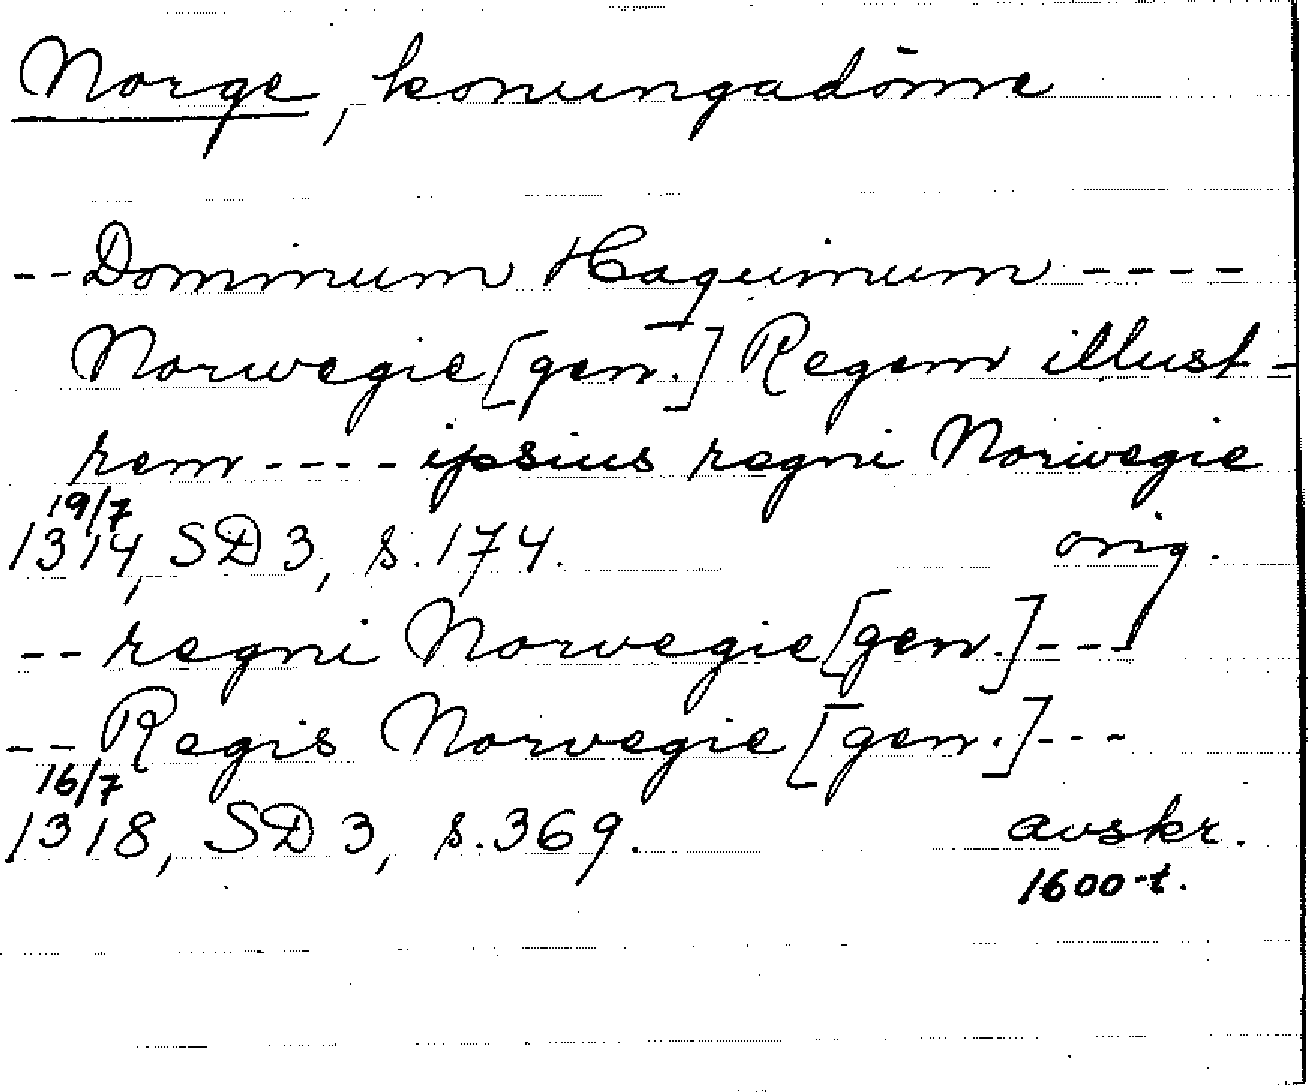 Norge, konungadöme
-- Dominum Haquinum ----
Norwegie [gen.] Regem illust-
rem ---- ipsius regni Norwegie
19/7
1314, SD 3, s. 174. orig.
-- regni Norvegie [gen.] ---
-- Regis Norvegie [gen.] ---
16/7
1318, SD 3, s. 369. avskr.
1600-t.